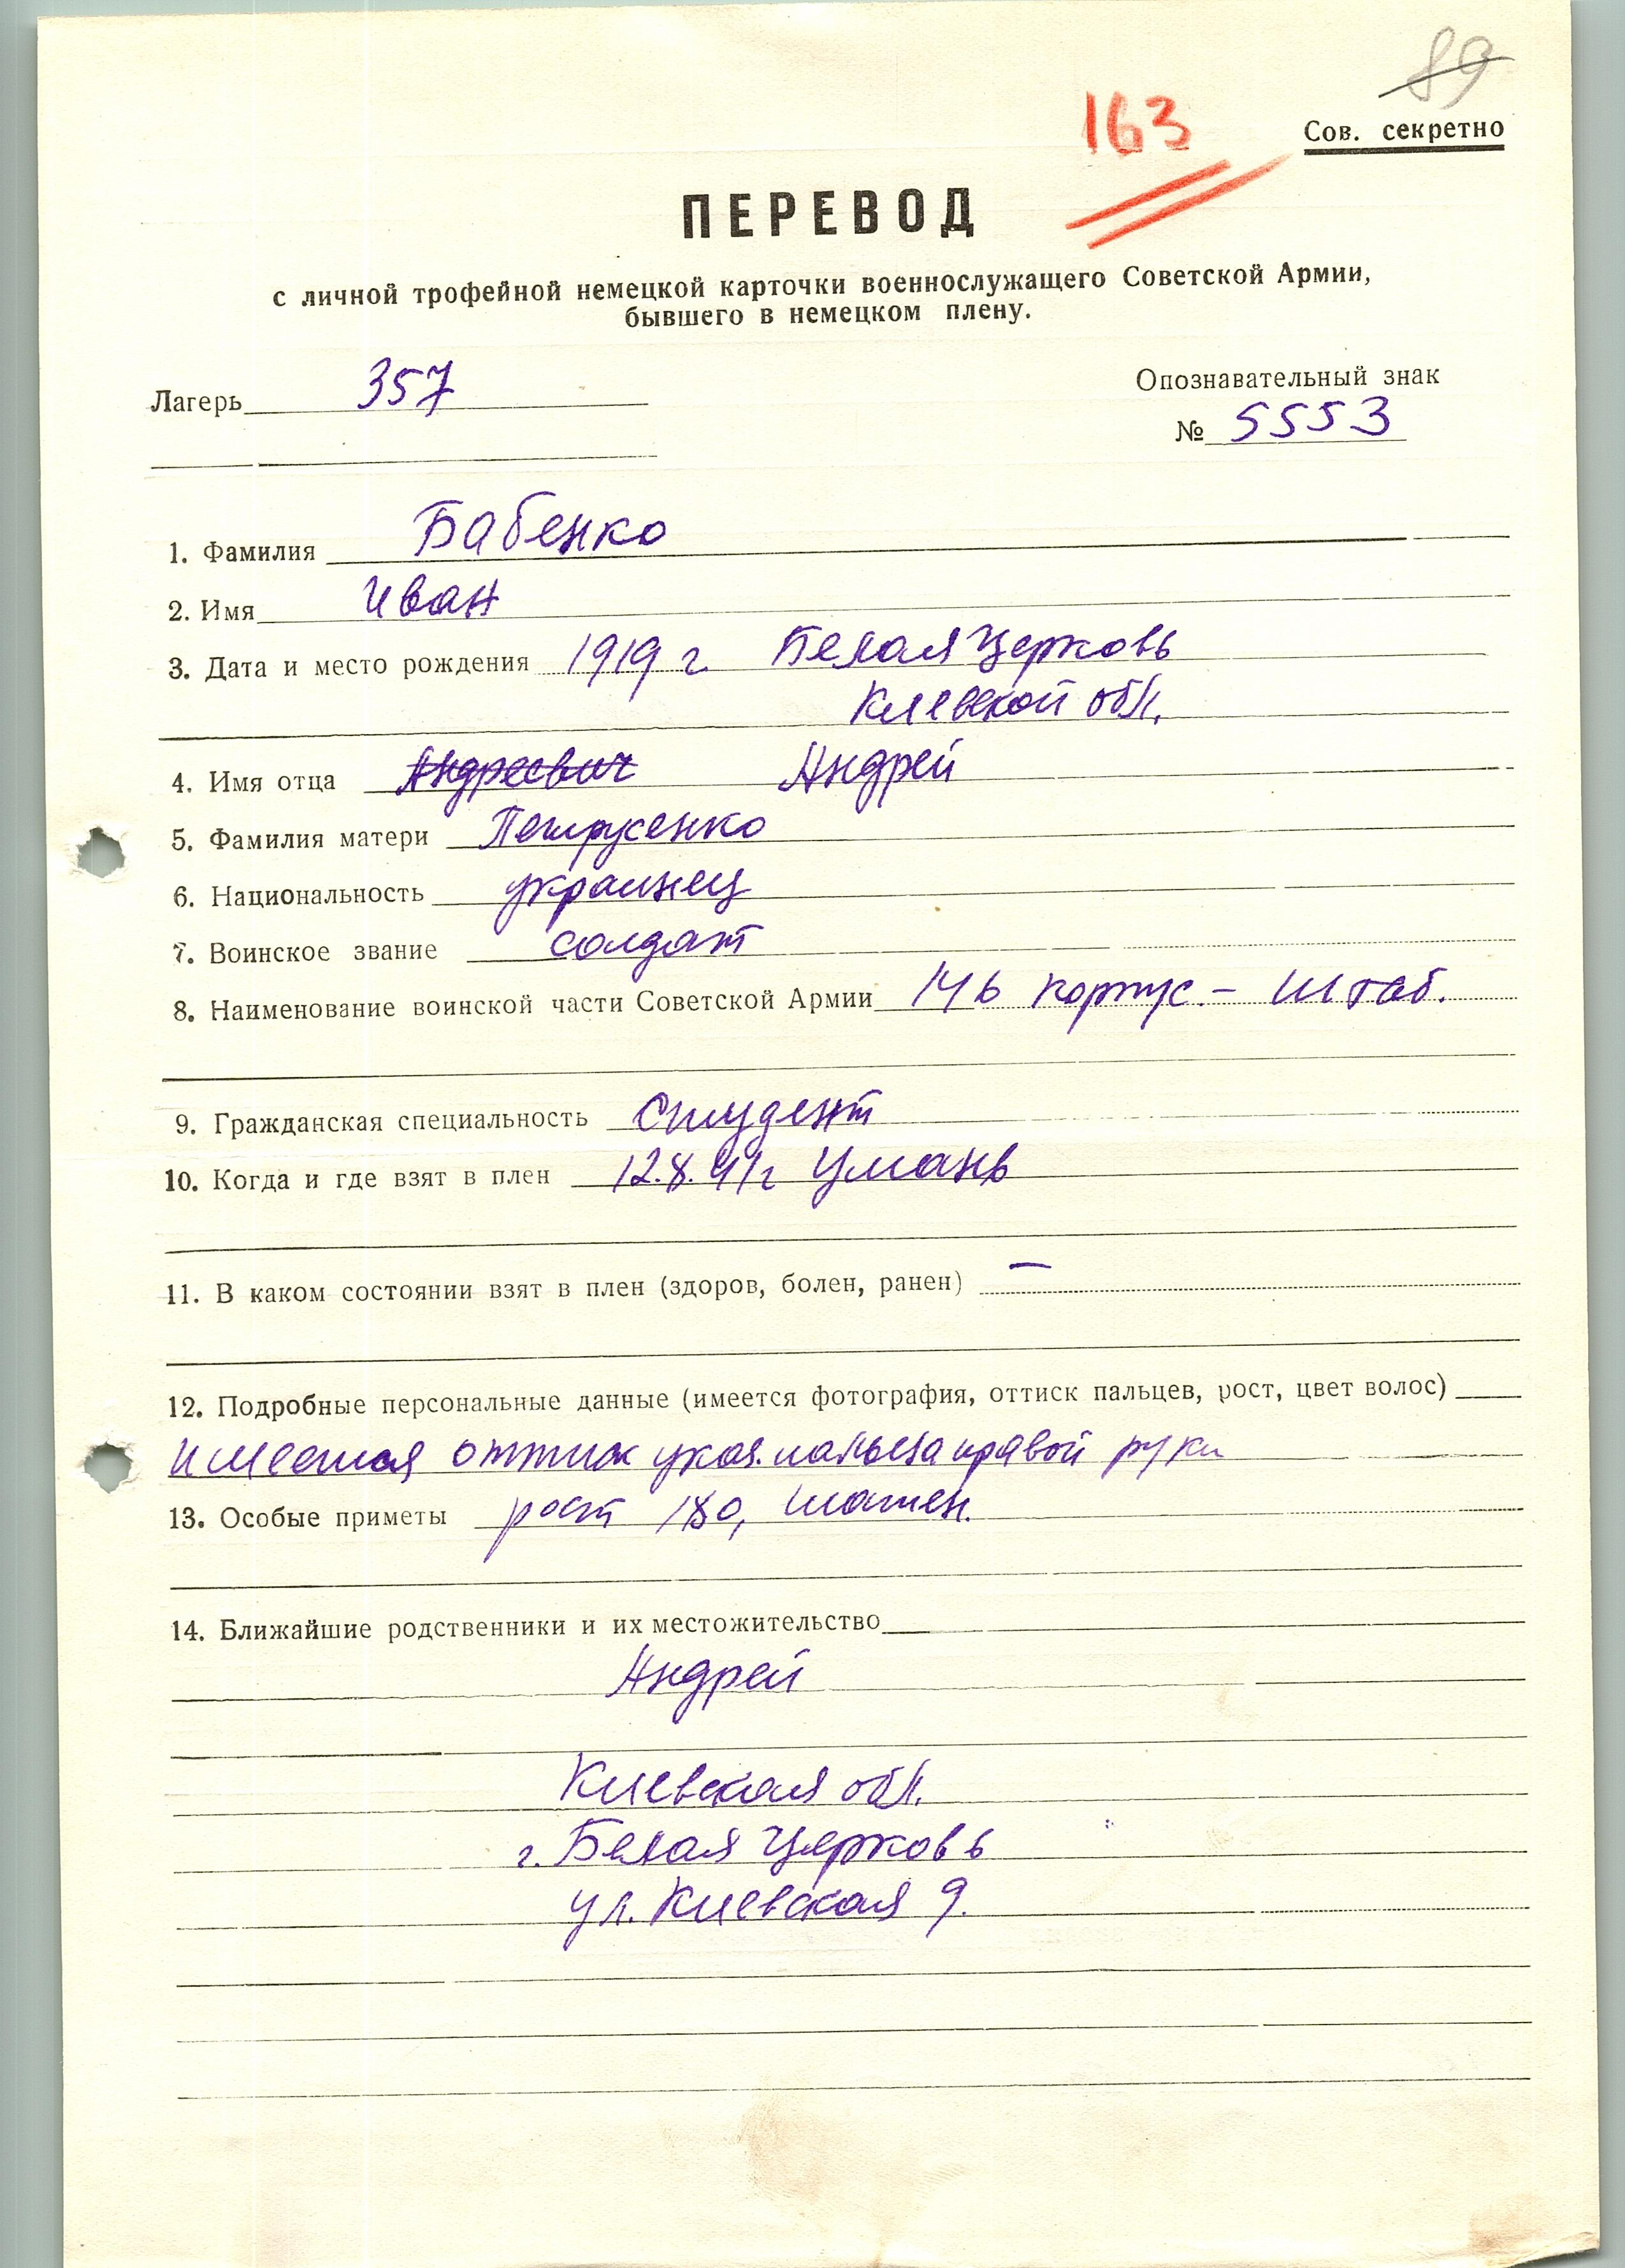 89
163
Сов. секретно
ПЕРЕВОД
с личной трофейной немецкой карточки военнослужащего Советской Армии,
бывшего в немецком плену.
Лагерь 357
Опознавательный знак
№ 5553
1. Фамилия Бабенко
2. Имя Иван
3. Дата и место рождения 1919 г Белая Церковь
Киевской обл.
4. Имя отца Андреевич Андрей
5. Фамилия матери Петрусенко
6. Национальность украинец
7. Воинское звание солдат
8. Наименование воинской части Советской Армии 146 корпус. – Штаб.
9. Гражданская специальность Студент
10. Когда и где взят в плен 12.8.41г Умань
11. В каком состоянии взят в плен (здоров, болен, ранен) —
12. Подробные персональные данные (имеется фотография, оттиск пальцев, рост, цвет волос)
имеется оттиск указ. пальца правой руки
13. Особые приметы рост 180, шатен.
14. Ближайшие родственники и их местожительство
Андрей
Киевская обл.
г. Белая Церковь
ул. Киевская 9.